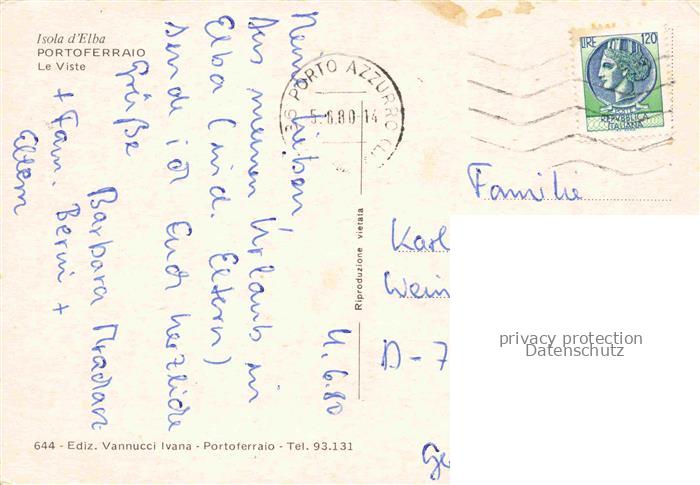 Isola d'Elba
PORTOFERRAIO
Le Viste
4.6.80
Meine Lieben,
Aus meinem Urlaub in
Elba (mit d. Eltern)
sende ich Euch herzliche
Grüße
Barbara
+ Fam. Berni +
Eltern
PORTO AZZURRO (LI)
5.6.80-14
LIRE 120
POSTE
REPVBBLICA
ITALIANA
Riproduzione vietata
Familie
Karl
Wein
D-7
privacy protection
Datenschutz
644 - Ediz. Vannucci Ivana - Portoferraio - Tel. 93.131